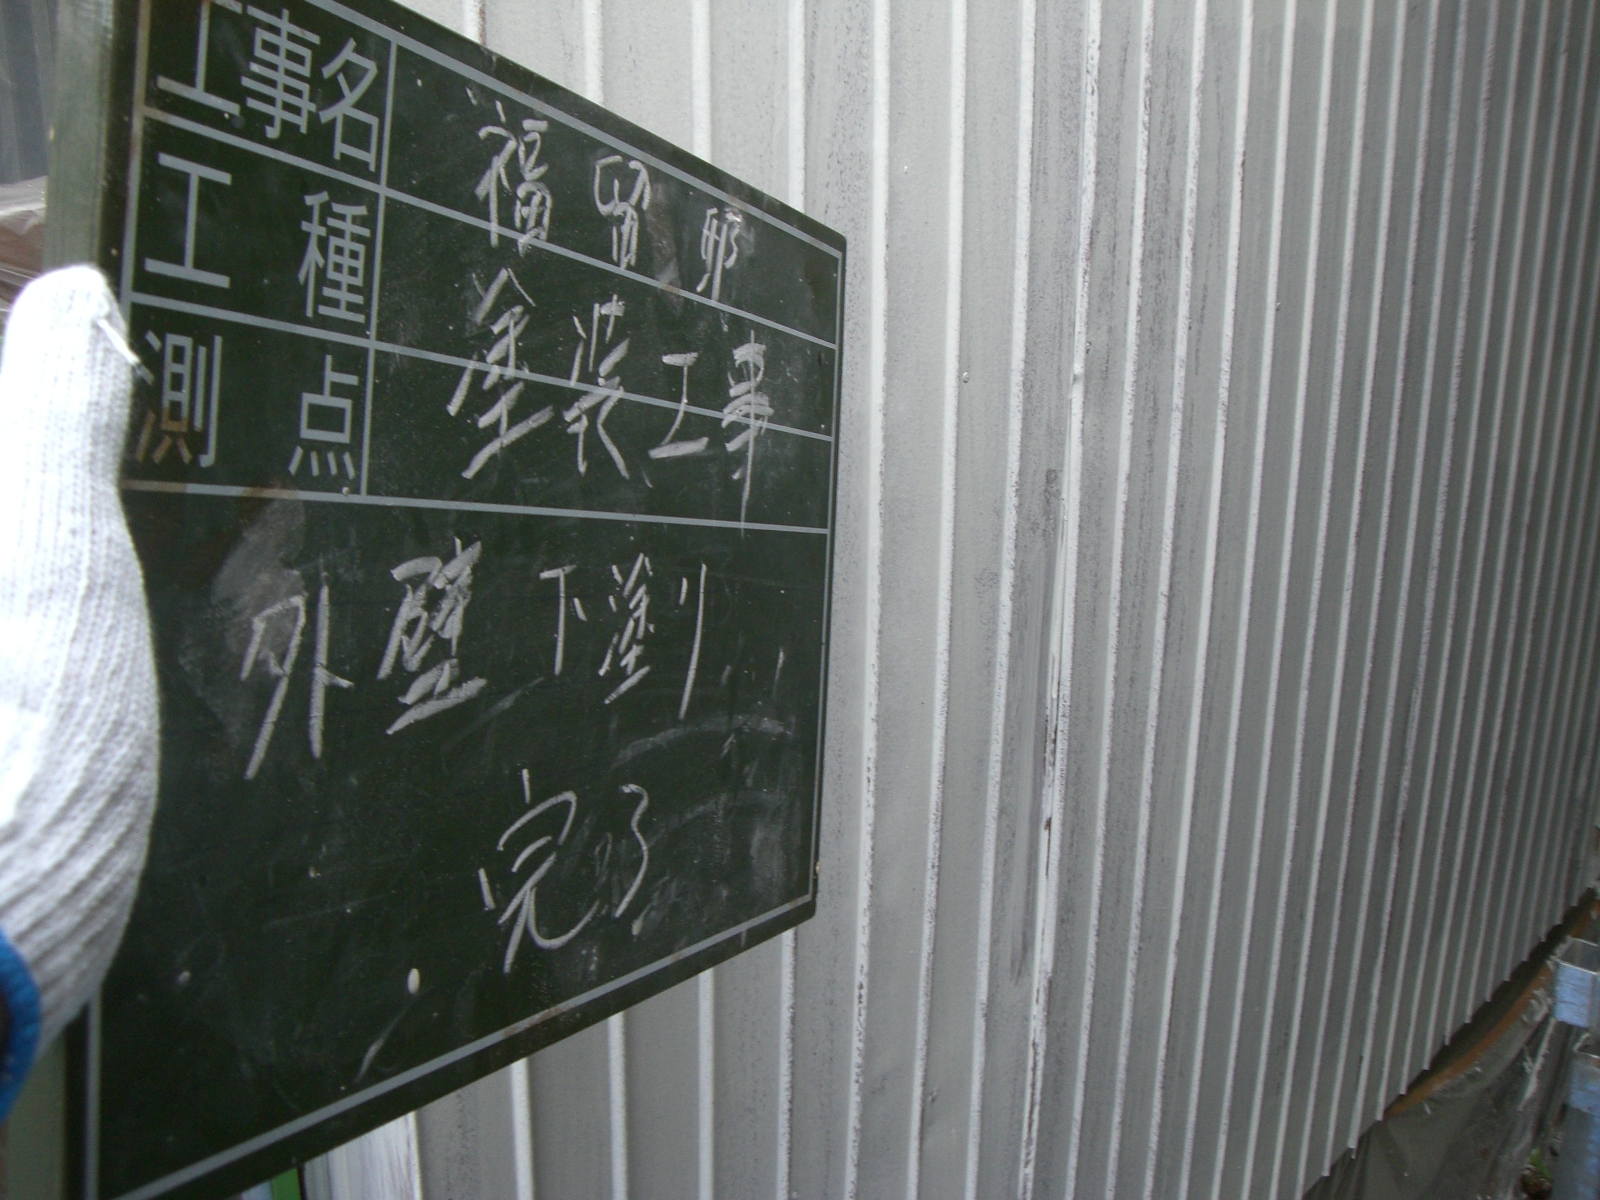 工事名 福留邸
工種 塗装工事
測点
外壁下塗り
完了